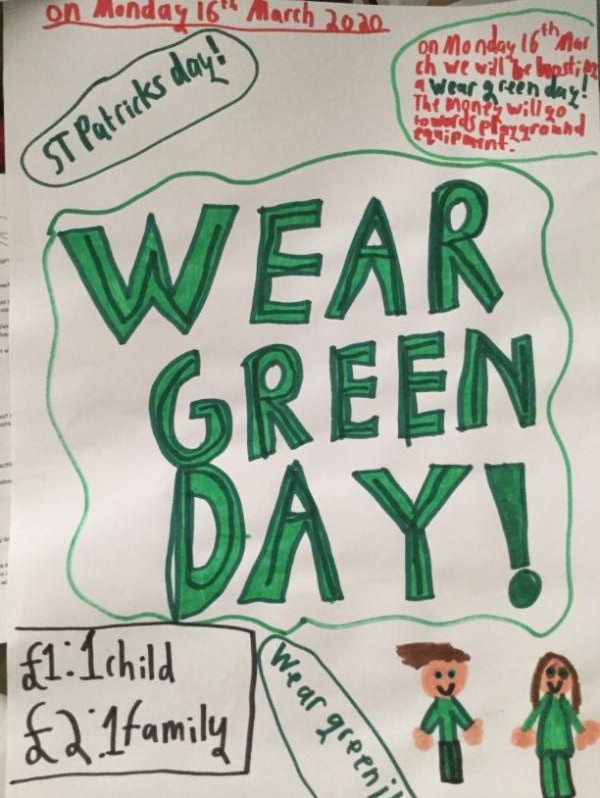 on Monday 16th March 2020
ST Patricks day!
on Monday 16th Mar
ch we will be hosting
a wear green day!
The money will go
towards playground
equipment.
WEAR
GREEN
DAY!
£1:1child
£2:1family
Wear green!!